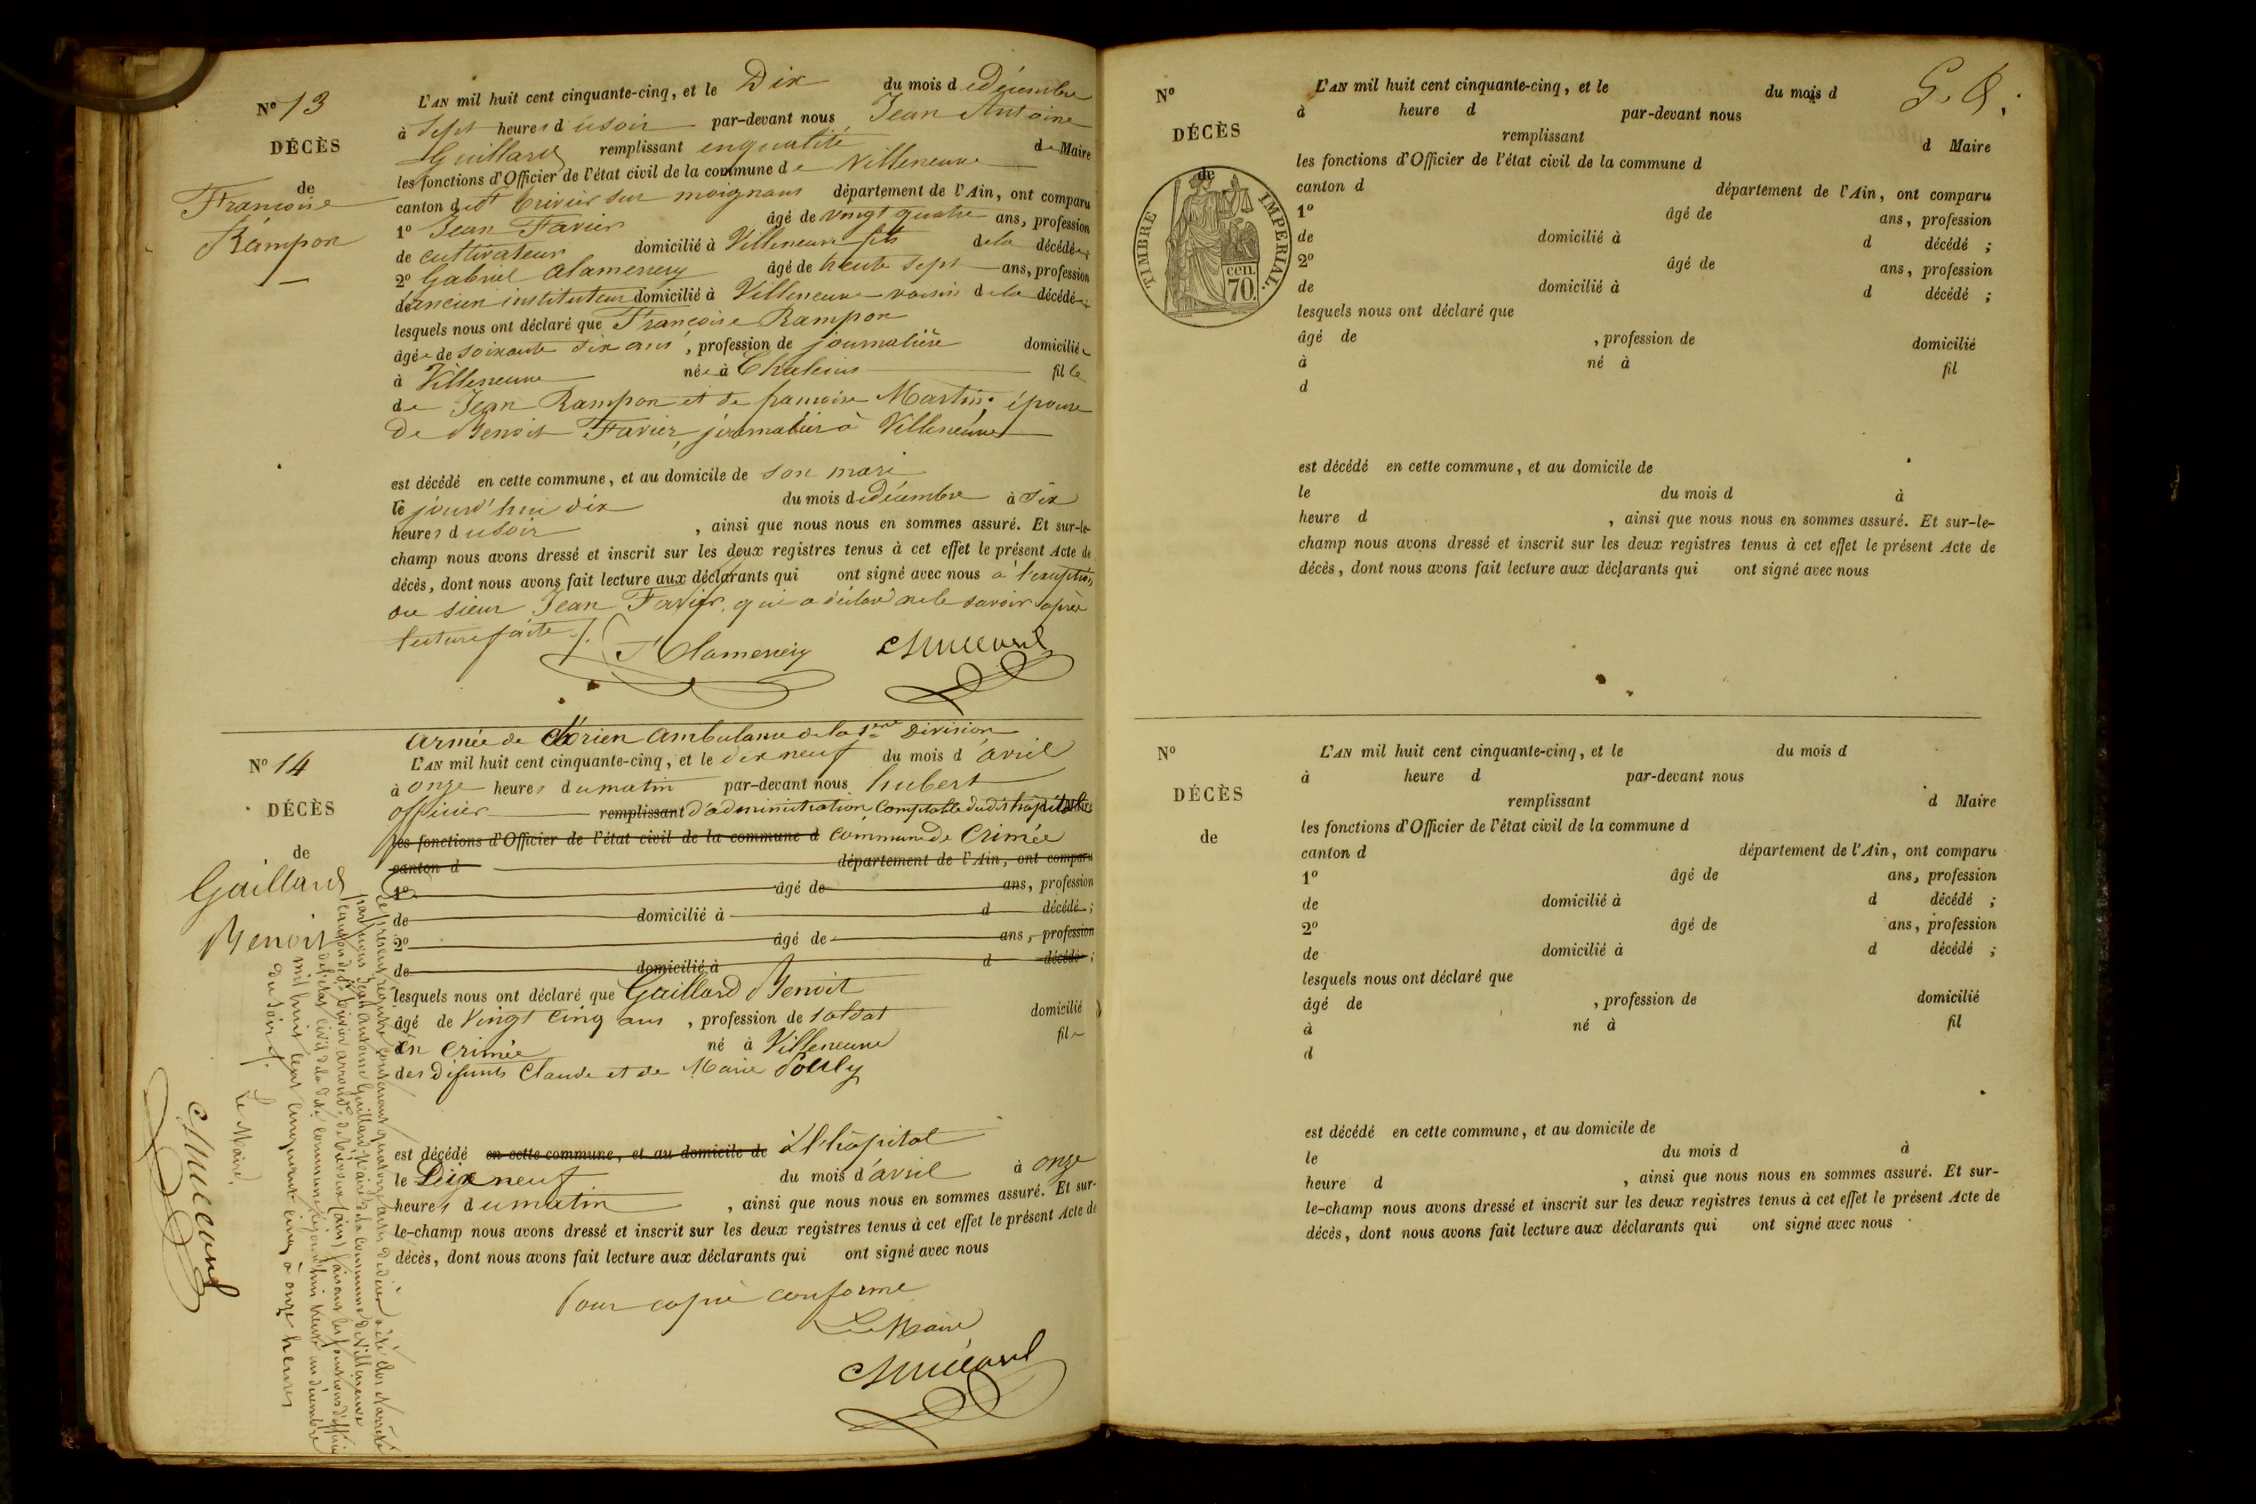 N° 13
DÉCÈS
de
Françoise
Rampon
L'AN mil huit cent cinquante-cinq, et le Dix du mois de Décembre
à Sept heures du soir par-devant nous Jean Antoine
Guillard remplissant en qualité de Maire
les fonctions d'Officier de l'état civil de la commune de Villeneuve
canton de St Trivier sur moignans département de l'Ain, ont comparu
1° Jean Favier âgé de vingt quatre ans, profession
de cultivateur domicilié à Villeneuve fils de la décédée
2° Gabriel Alamercery âgé de trente sept ans, profession
d'ancien instituteur domicilié à Villeneuve voisin de la décédée
lesquels nous ont déclaré que Françoise Rampon
âgée de soixante six ans, profession de journalière domiciliée
à Villeneuve née à Chaleins fille
de Jean Rampon et de françoise Martin, épouse
De Benoit Favier, journalier à Villeneuve
est décédé en cette commune, et au domicile de son mari
le jourd'hui dix du mois de décembre à Six
heures du soir, ainsi que nous nous en sommes assuré. Et sur-le-
champ nous avons dressé et inscrit sur les deux registres tenus à cet effet le présent Acte de
décès, dont nous avons fait lecture aux déclarants qui ont signé avec nous à l'exception
du sieur Jean Favier qui a déclaré ne le savoir après
lecture faite ./.
Alamercery Guillard
N° 14
DÉCÈS
de
Gaillard
Benoit
armée de d'Orien Ambulance de la 1ere Division
L'AN mil huit cent cinquante-cinq, et le dix neuf du mois d'avril
à onze heures du matin par-devant nous hubert
officier remplissant d'administration Comptable dudit hôpital
les fonctions d'Officier de l'état civil de la commune d commune de Crimée
canton d département de l'Ain, ont comparu
1° âgé de ans, profession
de domicilié à d décédé ;
2° âgé de ans, profession
de domicilié à d décédé ;
lesquels nous ont déclaré que Gaillard Benoit
âgé de Vingt Cinq ans, profession de soldat domicilié
en Crimée né à Villeneuve fils
des défunts Claude et de Marie
est décédé en cette commune, et au domicile de à l'hôpital
le Dix neuf du mois d'avril à onze
heures du matin, ainsi que nous nous en sommes assuré. Et sur-
le-champ nous avons dressé et inscrit sur les deux registres tenus à cet effet le présent Acte de
décès, dont nous avons fait lecture aux déclarants qui ont signé avec nous
Pour copie conforme
Le Maire
Guillard
Le présent registre contenant quatorze actes de décès a été clos et arrêté
par nous Jean Antoine Guillard Maire de la commune de Villeneuve
canton de St Trivier arrond. de Trévoux (ain) faisant les fonctions d'officier
de l'état civil de la dite commune cejourd'hui trente un décembre
mil huit cent cinquante cinq à onze heures
du soir ./.
Le Maire.
Guillard
N°
DÉCÈS
de
TIMBRE IMPERIAL.
cen.
70.
L'AN mil huit cent cinquante-cinq, et le du mois d
à heure d par-devant nous
remplissant d Maire
les fonctions d'Officier de l'état civil de la commune d
canton d département de l'Ain, ont comparu
1° âgé de ans, profession
de domicilié à d décédé ;
2° âgé de ans, profession
de domicilié à d décédé ;
lesquels nous ont déclaré que
âgé de , profession de domicilié
à né à fil
d
est décédé en cette commune, et au domicile de
le du mois d à
heure d , ainsi que nous nous en sommes assuré. Et sur-le-
champ nous avons dressé et inscrit sur les deux registres tenus à cet effet le présent Acte de
décès, dont nous avons fait lecture aux déclarants qui ont signé avec nous
N°
DÉCÈS
de
L'AN mil huit cent cinquante-cinq, et le du mois d
à heure d par-devant nous
remplissant d Maire
les fonctions d'Officier de l'état civil de la commune d
canton d département de l'Ain, ont comparu
1° âgé de ans, profession
de domicilié à d décédé ;
2° âgé de ans, profession
de domicilié à d décédé ;
lesquels nous ont déclaré que
âgé de , profession de domicilié
à né à fil
d
est décédé en cette commune, et au domicile de
le du mois d à
heure d , ainsi que nous nous en sommes assuré. Et sur-
le-champ nous avons dressé et inscrit sur les deux registres tenus à cet effet le présent Acte de
décès, dont nous avons fait lecture aux déclarants qui ont signé avec nous